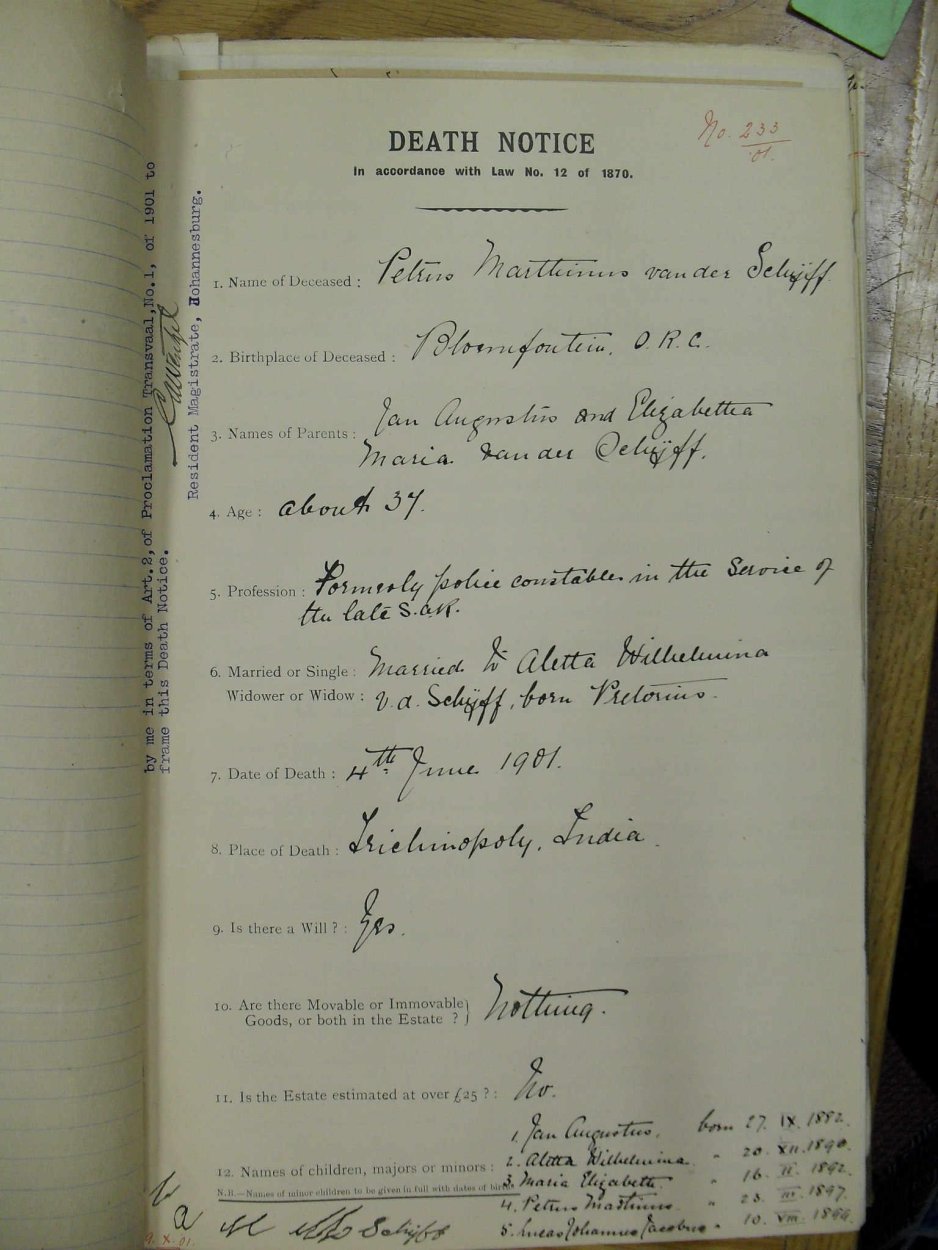 DEATH NOTICE
No. 233
01.
In accordance with Law No. 12 of 1870.
by me in terms of Art.2, of Proclamation Transvaal, No.1, of 1901 to
frame this Death Notice.
Resident Magistrate, Johannesburg.
1. Name of Deceased : Petrus Marthinus van der Schijff
2. Birthplace of Deceased : Bloemfontein, O.R.C.
3. Names of Parents : Jan Augustus and Elizabetha
Maria van der Schijff.
4. Age : about 37.
5. Profession : Formerly police constable in the Service of
the late S.A.R.
6. Married or Single : Married to Aletta Wilhelmina
Widower or Widow : v.d. Schijff, born Pretorius.
7. Date of Death : 4th June 1901.
8. Place of Death : Trichinopoly, India.
9. Is there a Will ? : Yes.
10. Are there Movable or Immovable
Goods, or both in the Estate ? } Nothing.
11. Is the Estate estimated at over £25 ? : No.
1. Jan Augustus, born 27. IX. 1882.
2. Aletta Wilhelmina " 20. XII. 1890.
12. Names of children, majors or minors :
3. Maria Elizabeth " 16. II. 1892.
N.B.—Names of minor children to be given in full with dates of birth.
4. Petrus Martinus " 23. III. 1897.
5. Lucas Johannes Jacobus " 10. VIII.
Schijff